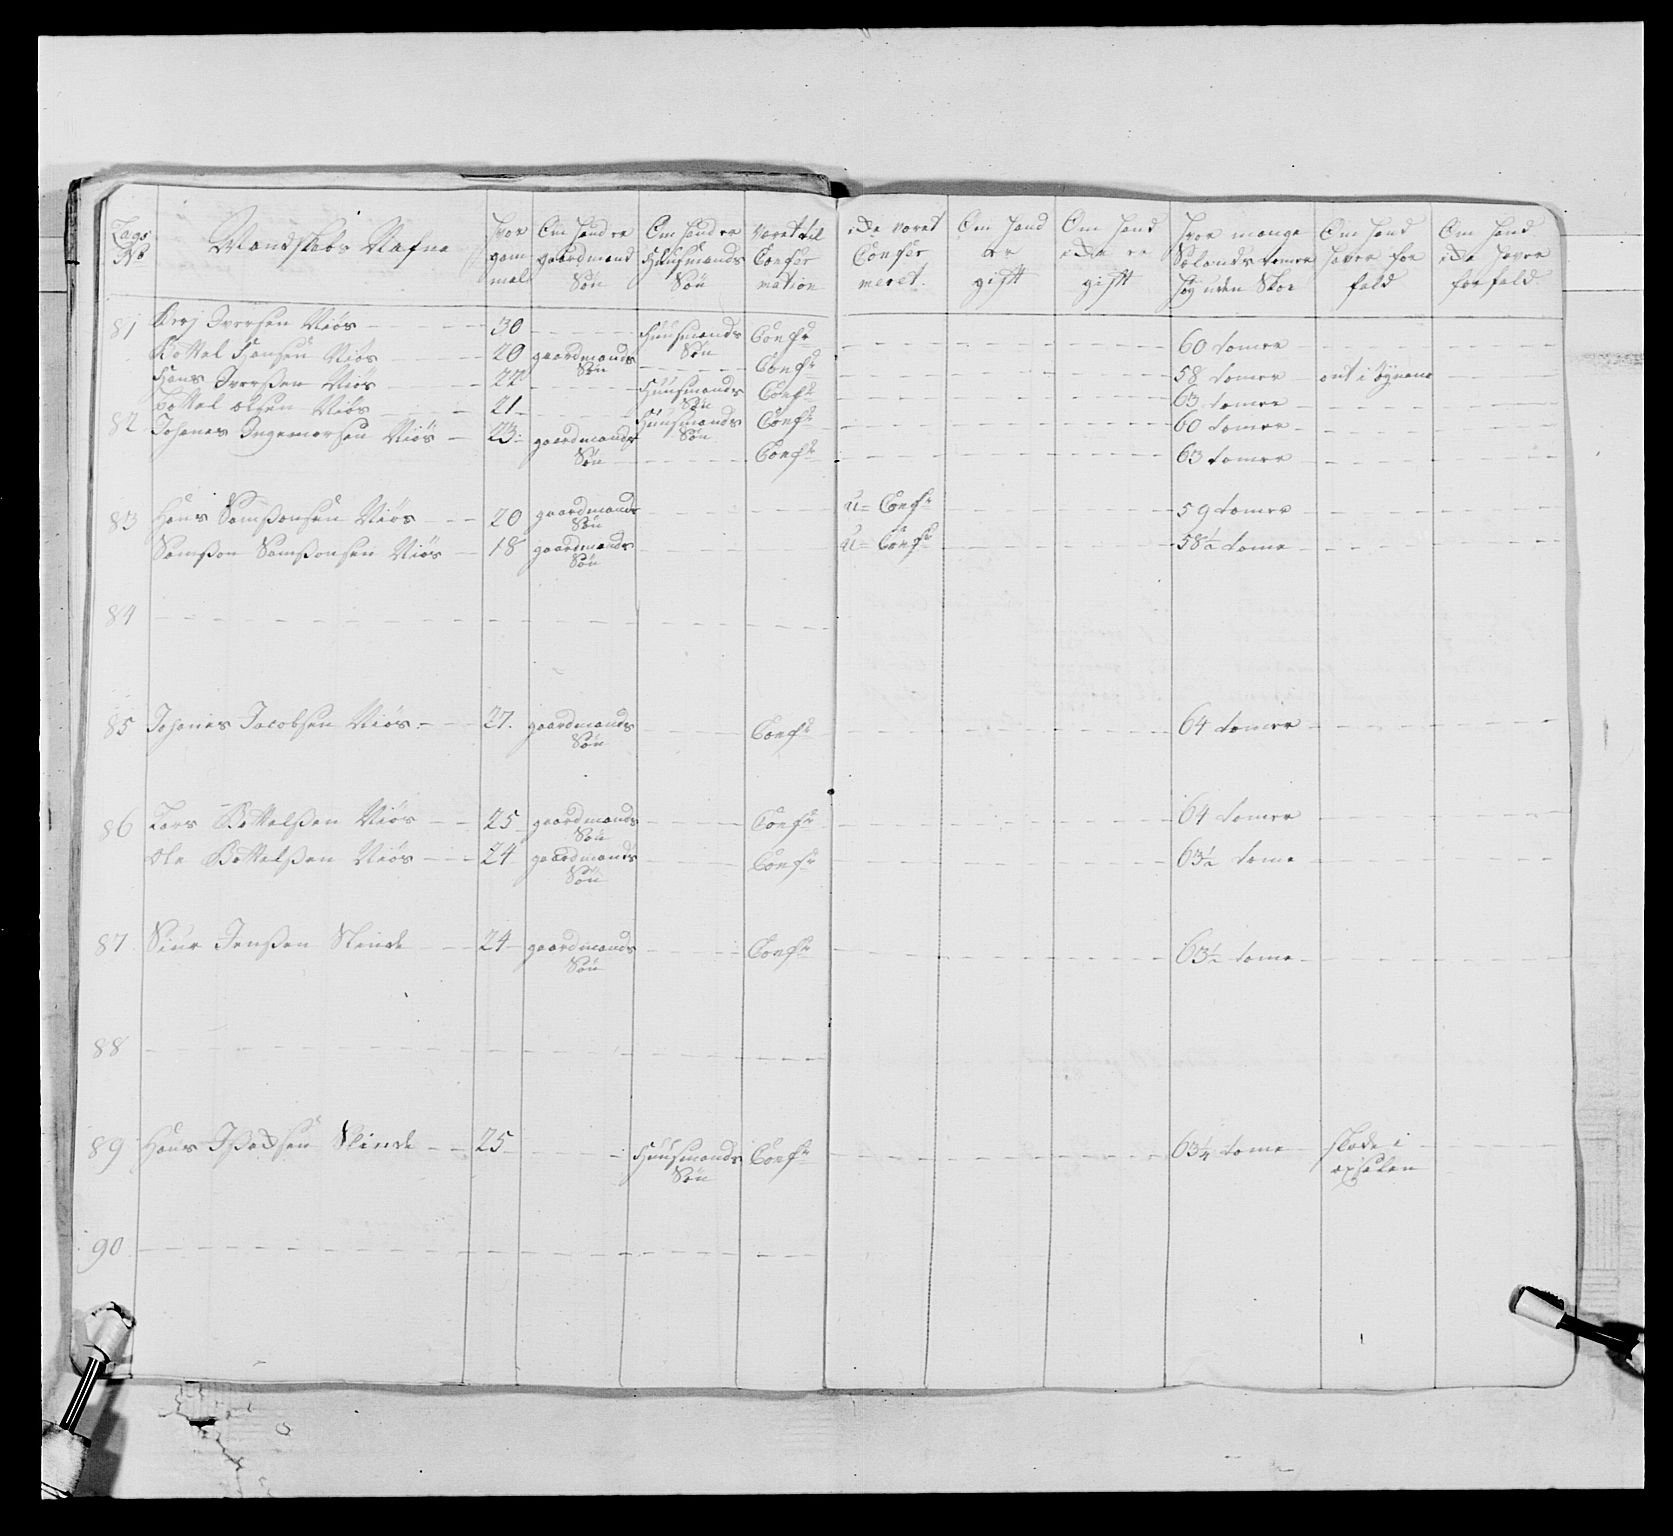 Lægs No | Mandskabs Nafne | Hvor gam mel | Om hand er gaardmand Søn | Om hand er Huusmands Søn | Været til Confir mation | icke været Confir meret. | Om hand er gift | Om hand icke er gift | Hvor mange Sælands tomer høy uden Skoe | Om hand haver for fald | Om hand icke haver forfald
81 | Iversen Niøs | 30 | | Huusmands Søn | Confr | | | | 60 tomer
Bottel Hansen Niøs | 20 | gaardmands Søn | | Confr | | | | 58 tomer | ont i Øynene
Hans Iverßen Niøs | 22 | | Huusmands Søn | Confr | | | | 63 tomer
Bottel olsen Niøs | 21 | | Huusmands Søn | Confr | | | | 60 tomer
82 | Johanes Ingemarsen Niøs | 23 | gaardmands Søn | | Confr | | | | 63 tomer
83 | Hans Samßonsen Niøs | 20 | gaardmands Søn | | | u= Confr | | | 59 tomer
Samßon Samßonsen Niøs | 18 | gaardmands Søn | | | u= Confr | | | 58½ tome
84
85 | Johanes Jacobsen Niøs | 27. | gaardmands Søn | | Confr | | | | 64 tomer
86 | Lars Bottelßen Niøs | 25 | gaardmands Søn | | Confr | | | | 64 tomer
Ole Bottelßen Niøs | 24 | gaardmands Søn | | Confr | | | | 63½ tome
87 | Siur Jenßen Slinde | 24 | gaardmands Søn | | Confr | | | | 63½ tome
88
89 | Hans Slinde | 25 | | Huusmands Søn | Confr | | | | 63¼ tome | skade i axselen
90